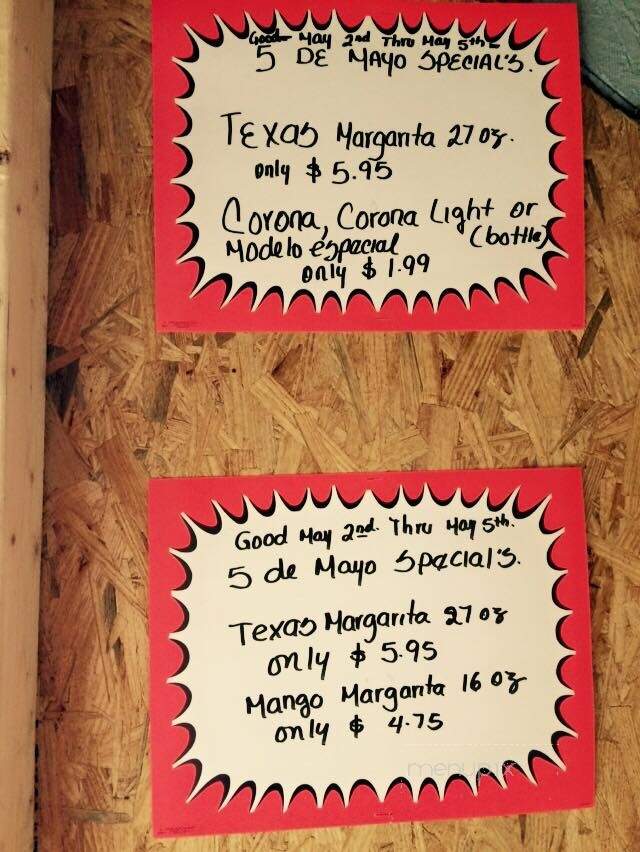 Good May 2nd Thru May 5th
5 DE MAYO SPECIAL'S.
TEXAS Margarita 27 oz.
only $ 5.95
Corona, Corona Light or
Modelo especial (bottle)
only $ 1.99
Good May 2nd. Thru May 5th.
5 de Mayo Spacial's.
Texas Margarita 27 oz
only $ 5.95
Mango Margarita 16 oz
only $ 4.75
menupix